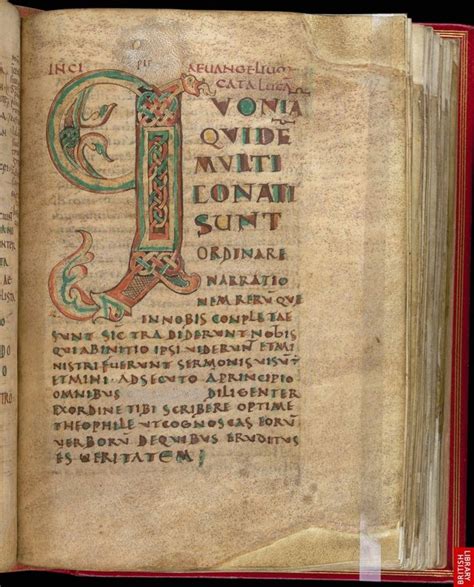 INCI PIT AEUANGELIUO
CATA LUCĀ
QUONIĀ
QUIDĒ
MULTI
CONATI
SUNT
ORDINARE
NARRATIO
NEM RERŪ QUE
IN NOBIS CONPLETAE
SUNT SIC TRADIDERUNT NOBIS
QUI AB INITIO IPSI VIDERUNT ET MI
NISTRI FUERUNT SERMONIS VISUM
ET MIHI ADSECUTO A PRINCIPIO
OMNIBUS DILIGENTER
EX ORDINE TIBI SCRIBERE OPTIME
THEOPHILE UT COGNOSCAS EORŪ
VERBORŪ DE QUIBUS ERUDITUS
ES VERITATEM;
BRITISH
LIBRARY